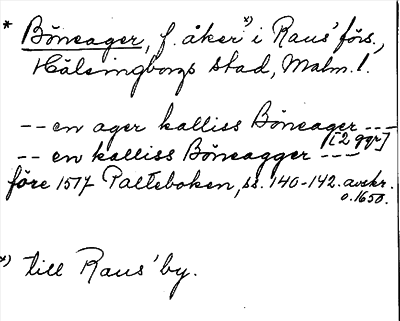 * Böneager, f. åker x) i Raus' förs.,
Hälsingborgs stad, Malm. l.
-- en ager kalliss Böneager ---
[2 ggr]
-- en kalliss Böneagger ---
före 1517 Palteboken, ss. 140-142. avskr.
o. 1650.
x) till Raus' by.